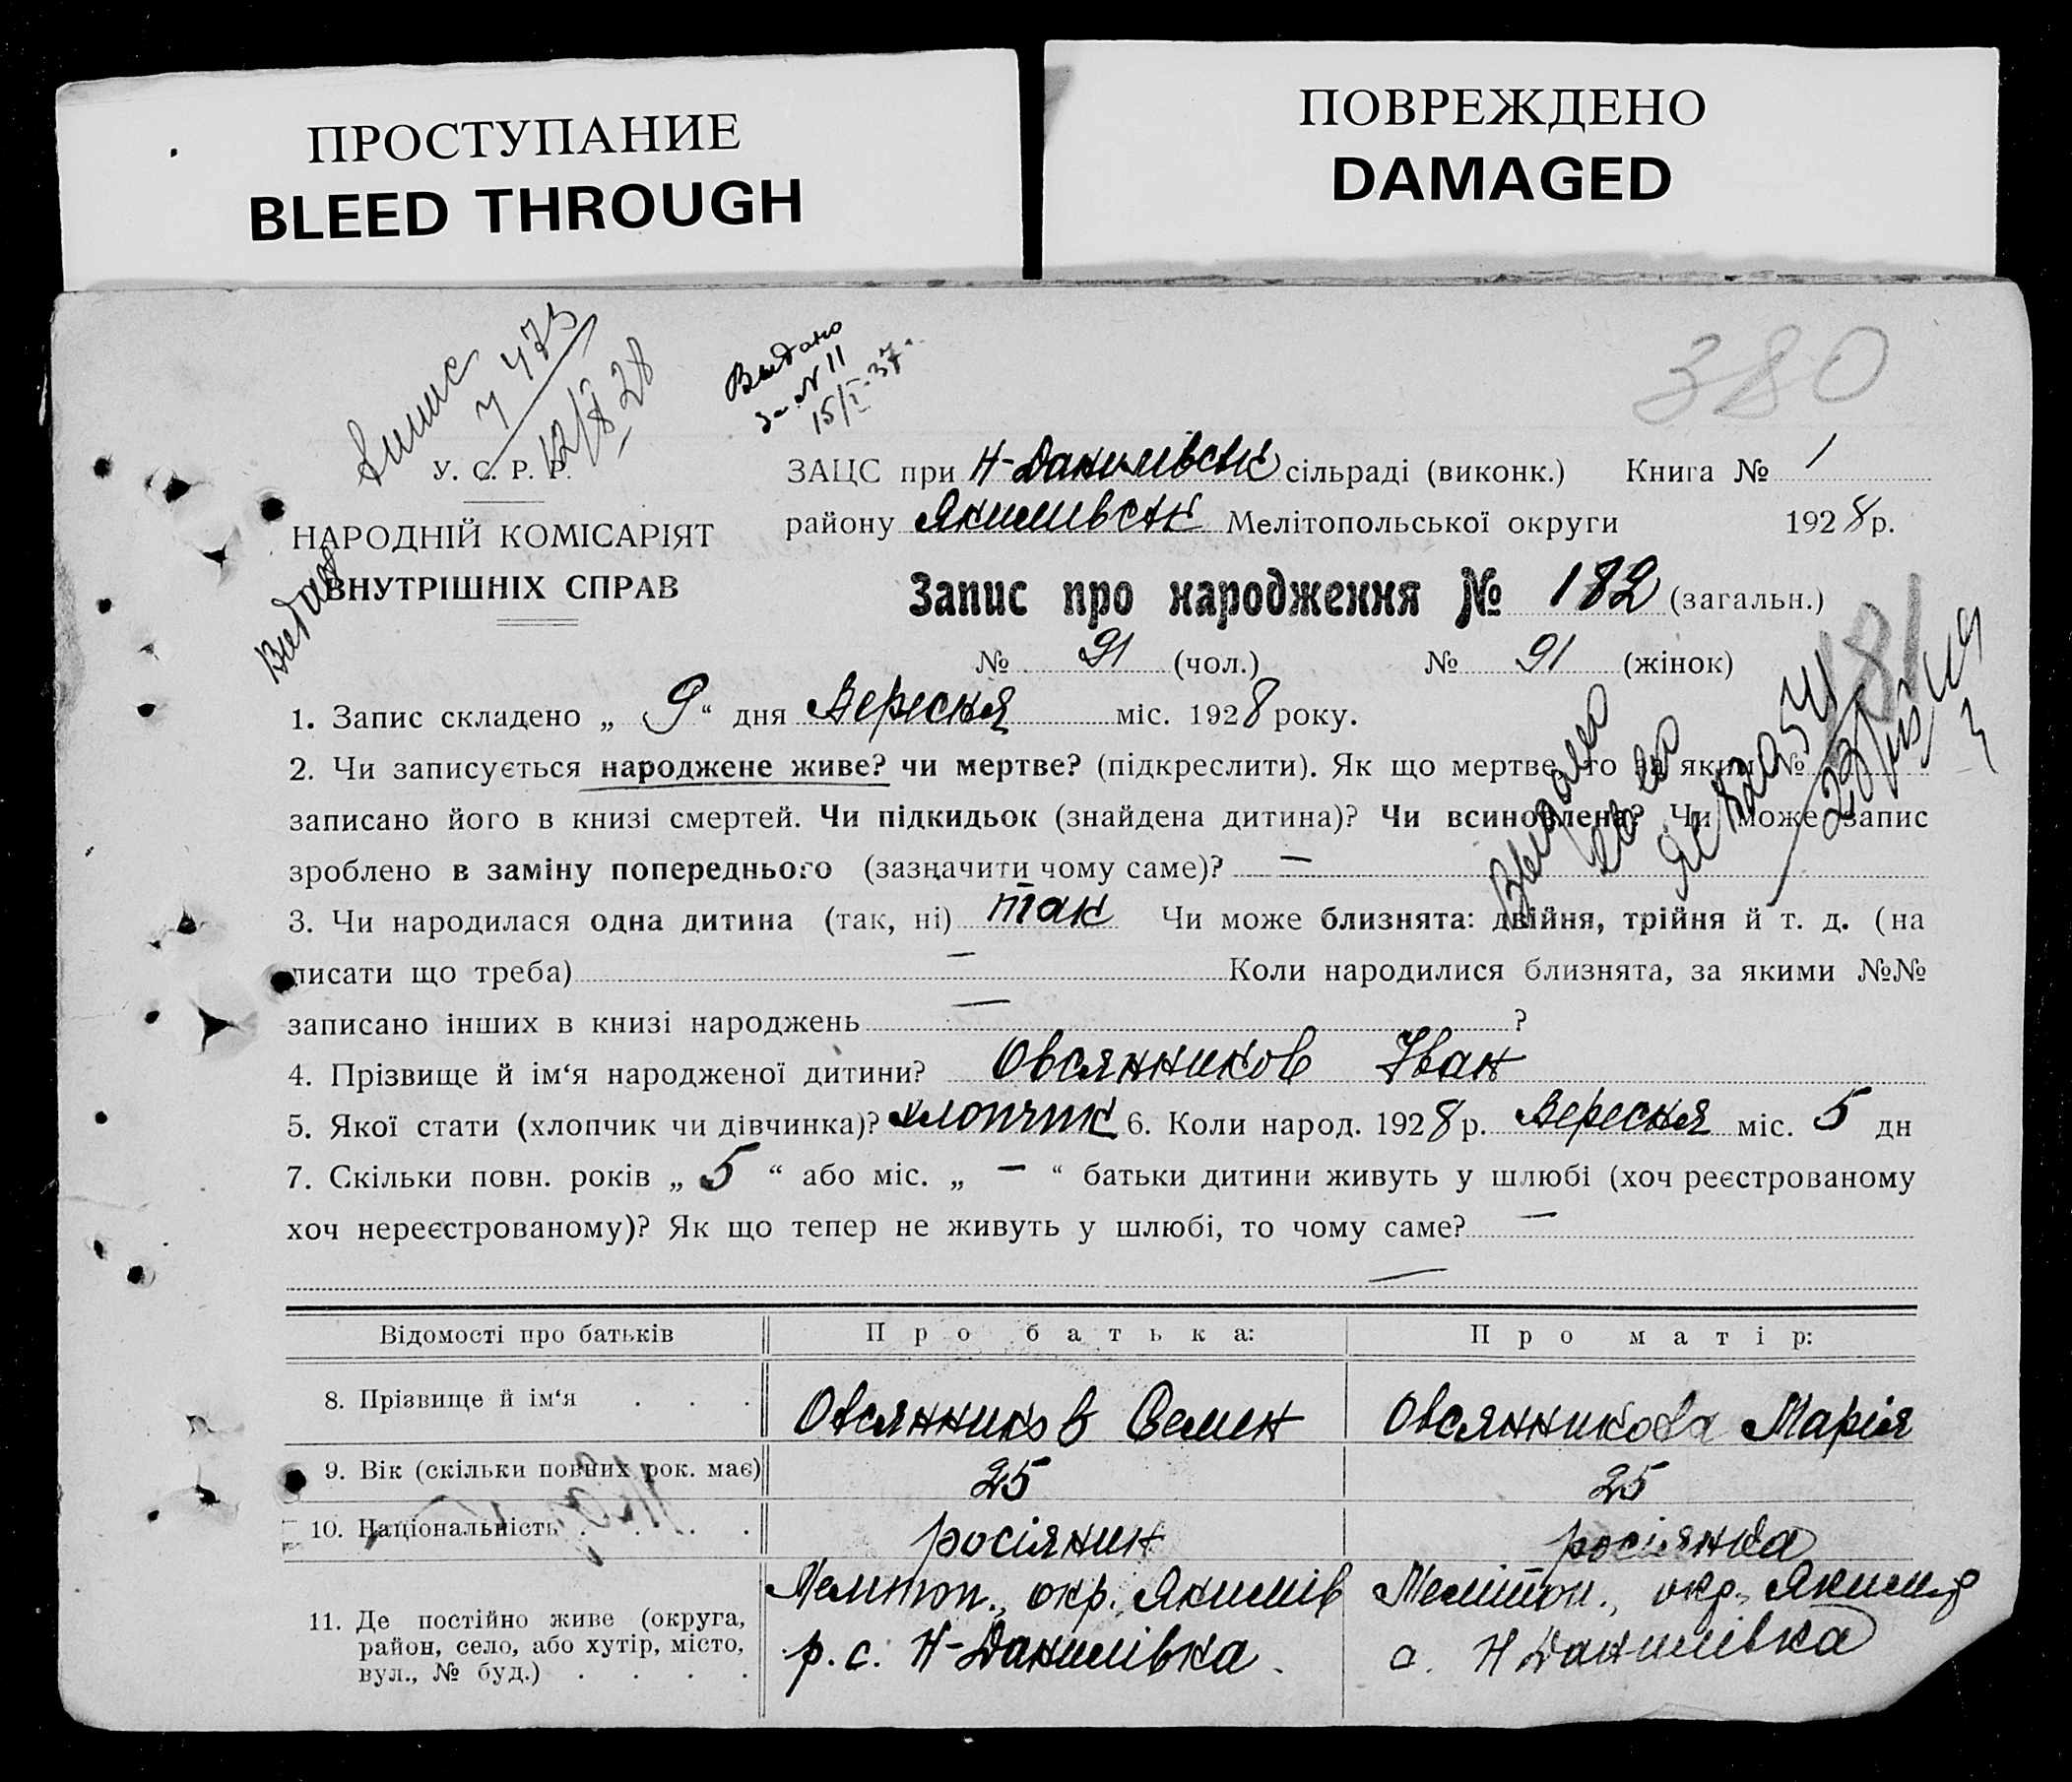 ПРОСТУПАНИЕ
BLEED THROUGH
ПОВРЕЖДЕНО
DAMAGED
380
Выдано
за № 11
15/I-37
12/X 28
У. С. Р. Р.
НАРОДНІЙ КОМІСАРІЯТ
ВНУТРІШНІХ СПРАВ
ЗАЦС при Н-Данилівськ сільраді (виконк.) Книга № 1
району Якимівськ Мелітопольської округи 1928 р.
Запис про народження № 182 (загальн.)
№ 91 (чол.) № 91 (жінок)
1. Запис складено „ 9 “ дня Вересня міс. 1928 року.
2. Чи записується народжене живе? чи мертве? (підкреслити). Як що мертве, то за яким №
записано його в книзі смертей. Чи підкидьок (знайдена дитина)? Чи всиновлена? Чи може запис
зроблено в заміну попереднього (зазначити чому саме)? —
3. Чи народилася одна дитина (так, ні) так Чи може близнята: двійня, трійня й т. д. (на
писати що треба) — Коли народилися близнята, за якими №№
записано інших в книзі народжень — ?
4. Прізвище й ім‘я народженої дитини? Овсянников Іван
5. Якої стати (хлопчик чи дівчинка)? хлопчик 6. Коли народ. 1928 р. Вересня міс. 5 дн
7. Скільки повн. років „ 5 “ або міс. „ — “ батьки дитини живуть у шлюбі (хоч реєстрованому
хоч нереєстрованому)? Як що тепер не живуть у шлюбі, то чому саме? —
—
Відомості про батьків Про батька: Про матір:
8. Прізвище й ім‘я . . . Овсянников Семен Овсянникова Марія
9. Вік (скільки повних рок. має) 25 25
10. Національність . . . . росіянин росіянка
11. Де постійно живе (округа, район, село, або хутір, місто, вул., № буд.) . . . .
Мелітоп., окр. Якимів
р. с. Н-Данилівка.
Мелітоп., окр., Яким р
с. Н Данилівка